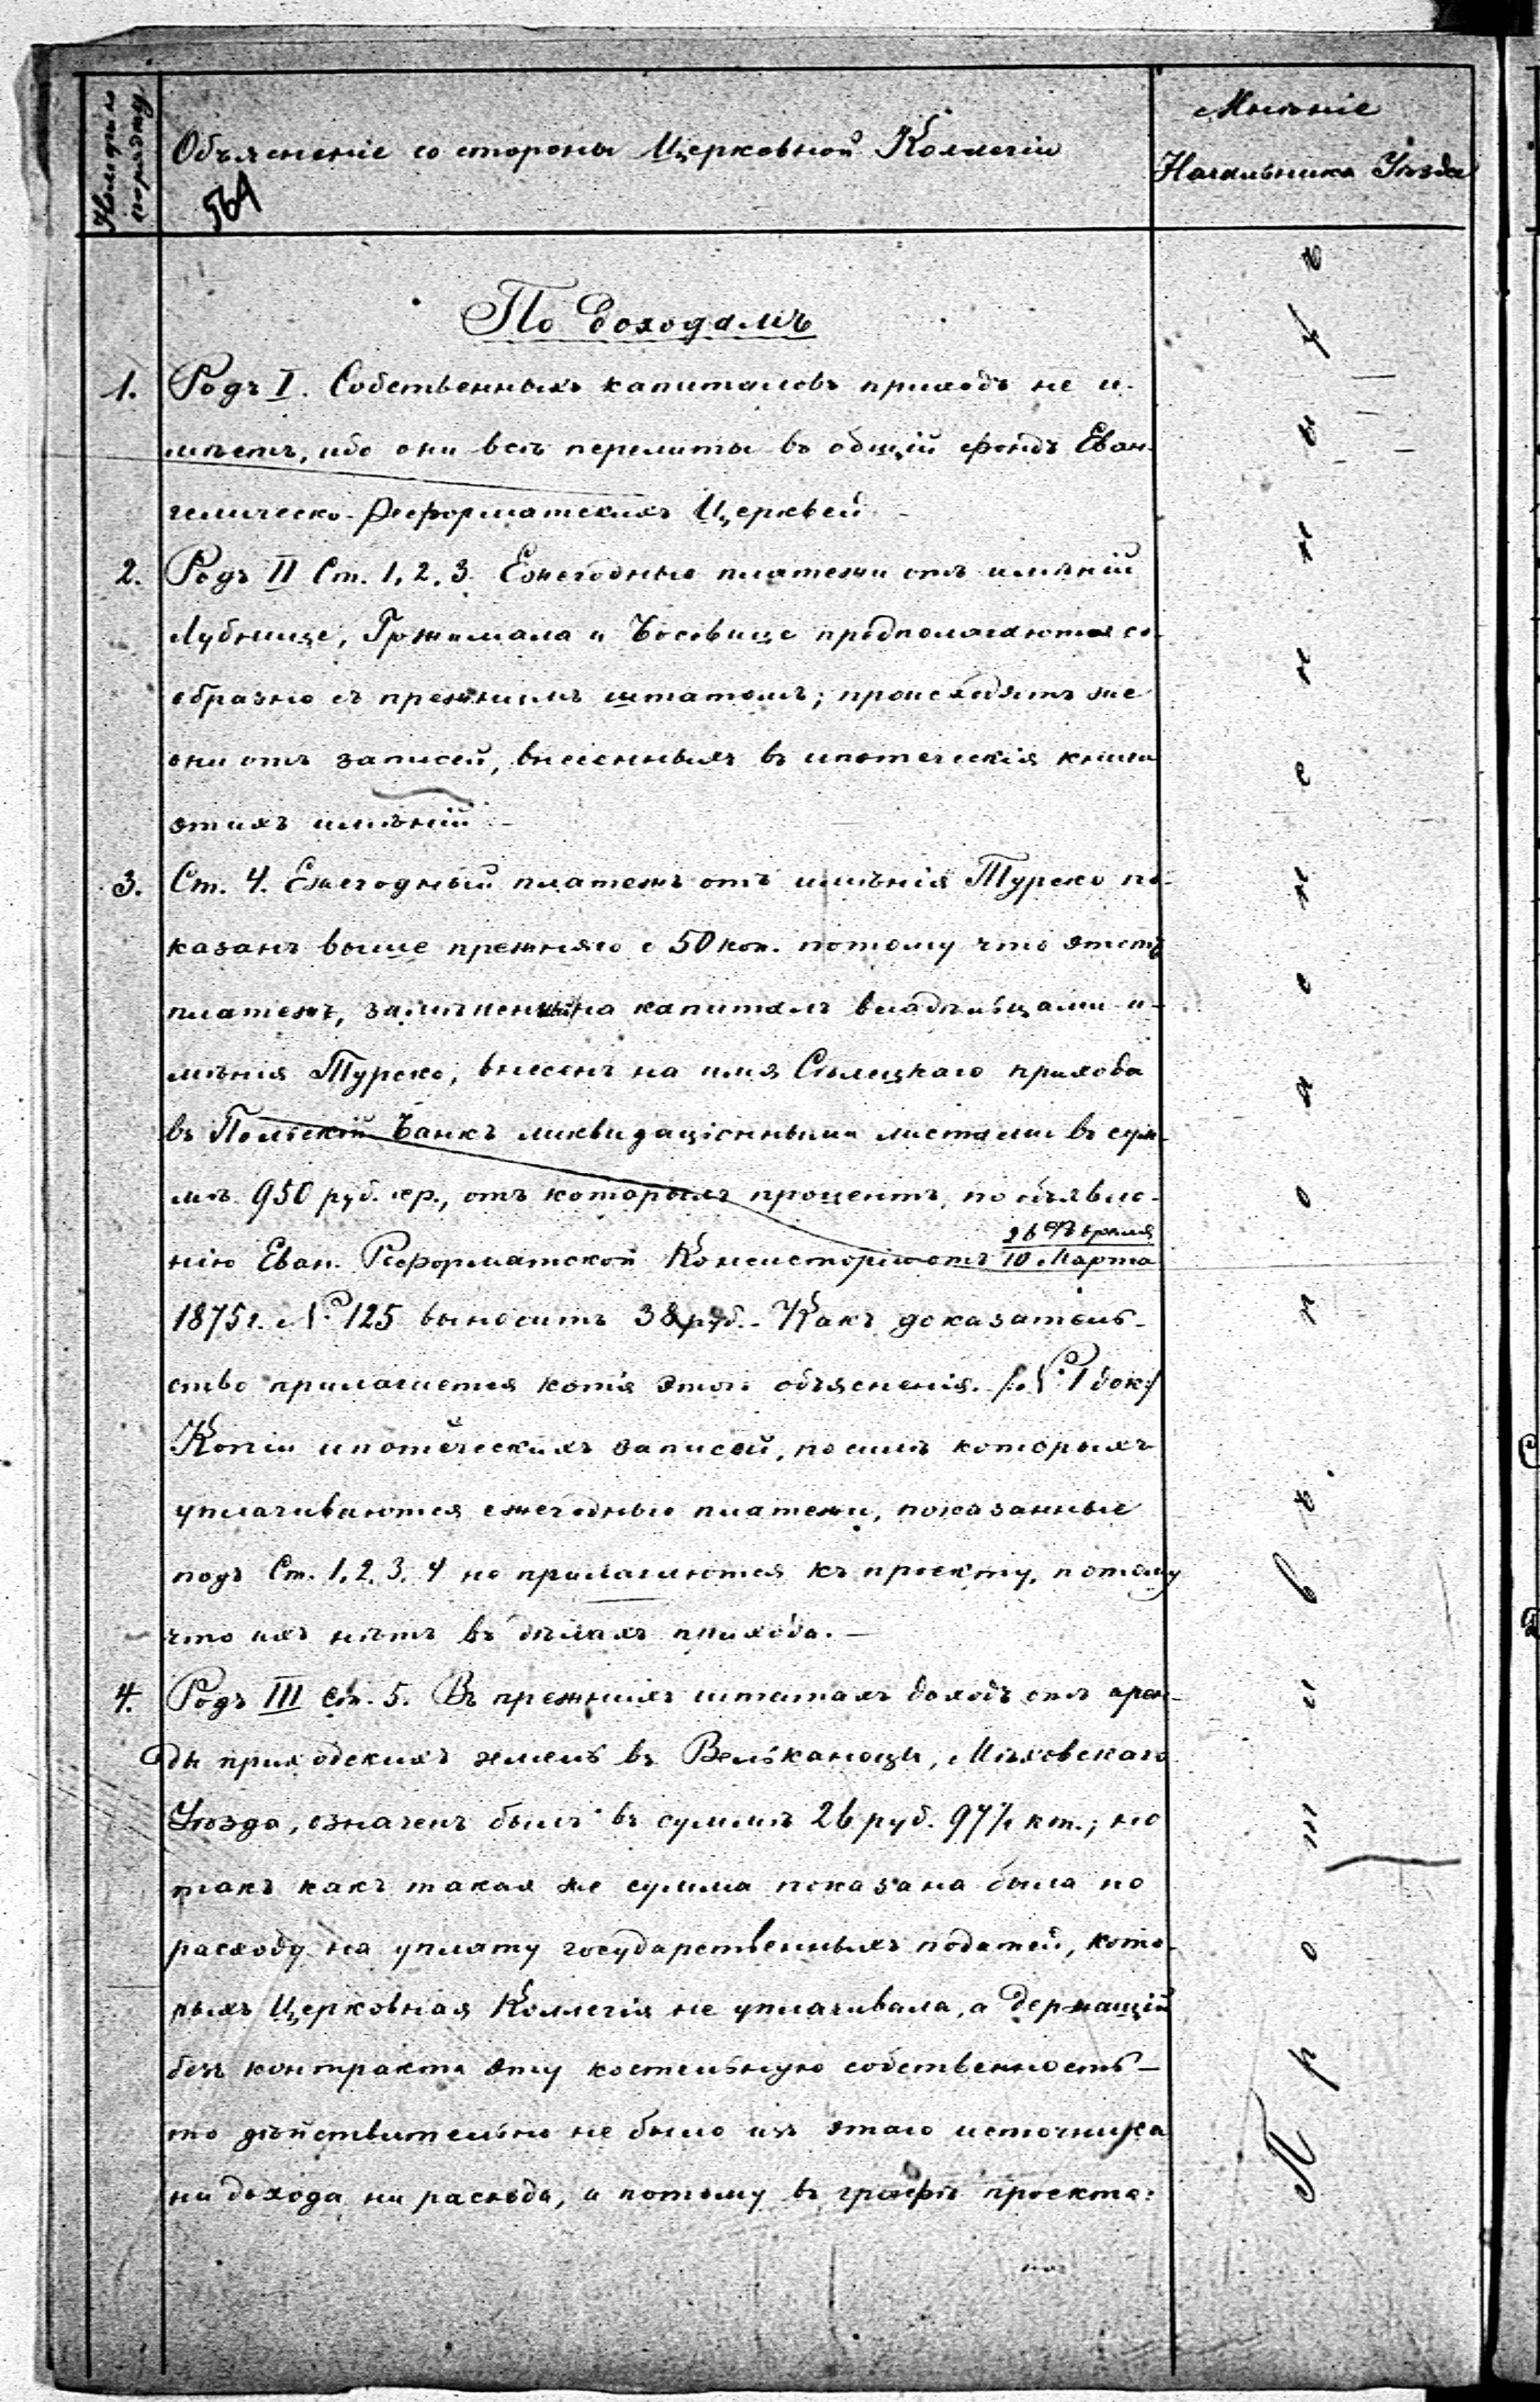 Номеръ по порядку
Объясненіе со стороны Церковной Коллегіи
Мнѣніе
Начальника Уѣзда
564
По доходамъ
1. Родъ I. Собственныхъ капиталовъ приходъ не и-
мѣетъ, ибо они всѣ перелиты въ общій фондъ Еван-
гелическо-Реформатскихъ Церквей
2. Родъ II Ст. 1, 2, 3. Ежегодные платежи отъ имѣній
Лубнице, Гржимала и Босовице предполагаются со-
образно съ прежнимъ штатомъ; происходятъ же
они отъ записей, внесенныхъ въ ипотечскія книги
этихъ имѣній. -
3. Ст. 4. Ежегодный платежъ отъ имѣнія Турско по-
казанъ выше прежняго о 50 коп. потому что этотъ
платежъ, замѣненный на капиталъ владѣльцами и-
мѣнія Турско, внесенъ на имя Сѣлецкаго прихода
въ Польскій Банкъ ликвидаціонными листами въ сум-
мѣ 950 руб. сер., отъ которыхъ процентъ, по объявле-
нію Еван. Реформатской Консисторіи отъ 26 Февраля / 10 Марта
1875 г. № 125 выноситъ 38 руб. - Какъ доказатель-
ство прилагается копія этого объясненія. /: № 1 док :/
Копіи ипотеческихъ записей, по силѣ которыхъ
уплачиваются ежегодные платежи, показанные
подъ Ст. 1, 2, 3, 4 не прилагаются къ проекту, потому
что ихъ нѣтъ въ дѣлахъ прихода. -
4. Родъ III Ст. 5. Въ прежнихъ штатахъ доходъ отъ арен-
ды приходскихъ земель въ Вельканоцы, Мѣховскаго
Уѣзда, означенъ былъ въ суммѣ 26 руб. 97½ кп.; но
такъ какъ такая же сумма показана была по
расходу на уплату государственныхъ податей, кото-
рыхъ Церковная Коллегія не уплачивала, а держащій
безъ контракта эту костельную собственность -
то дѣйствительно не было изъ этаго источника
ни дохода ни расхода, а потому въ графѣ проекта: